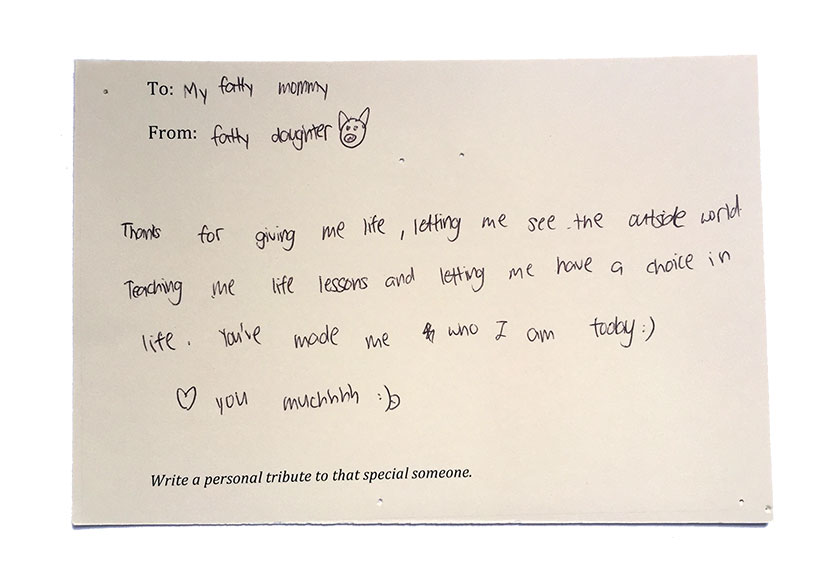 To: My fatty mommy
From: fatty daughter
Thanks for giving me life, letting me see the outside world
Teaching me life lessons and letting me have a choice in
life. You've made me who I am today :)
♡ you muchhhh :b
Write a personal tribute to that special someone.